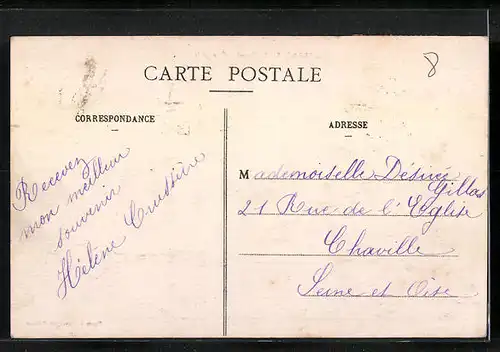 8
CARTE POSTALE
CORRESPONDANCE
ADRESSE
Recevez
mon meilleur
souvenir
Hélène
Mademoiselle Désirée
Gillas
21 Rue de l'Eglise
Chaville
Seine et Oise